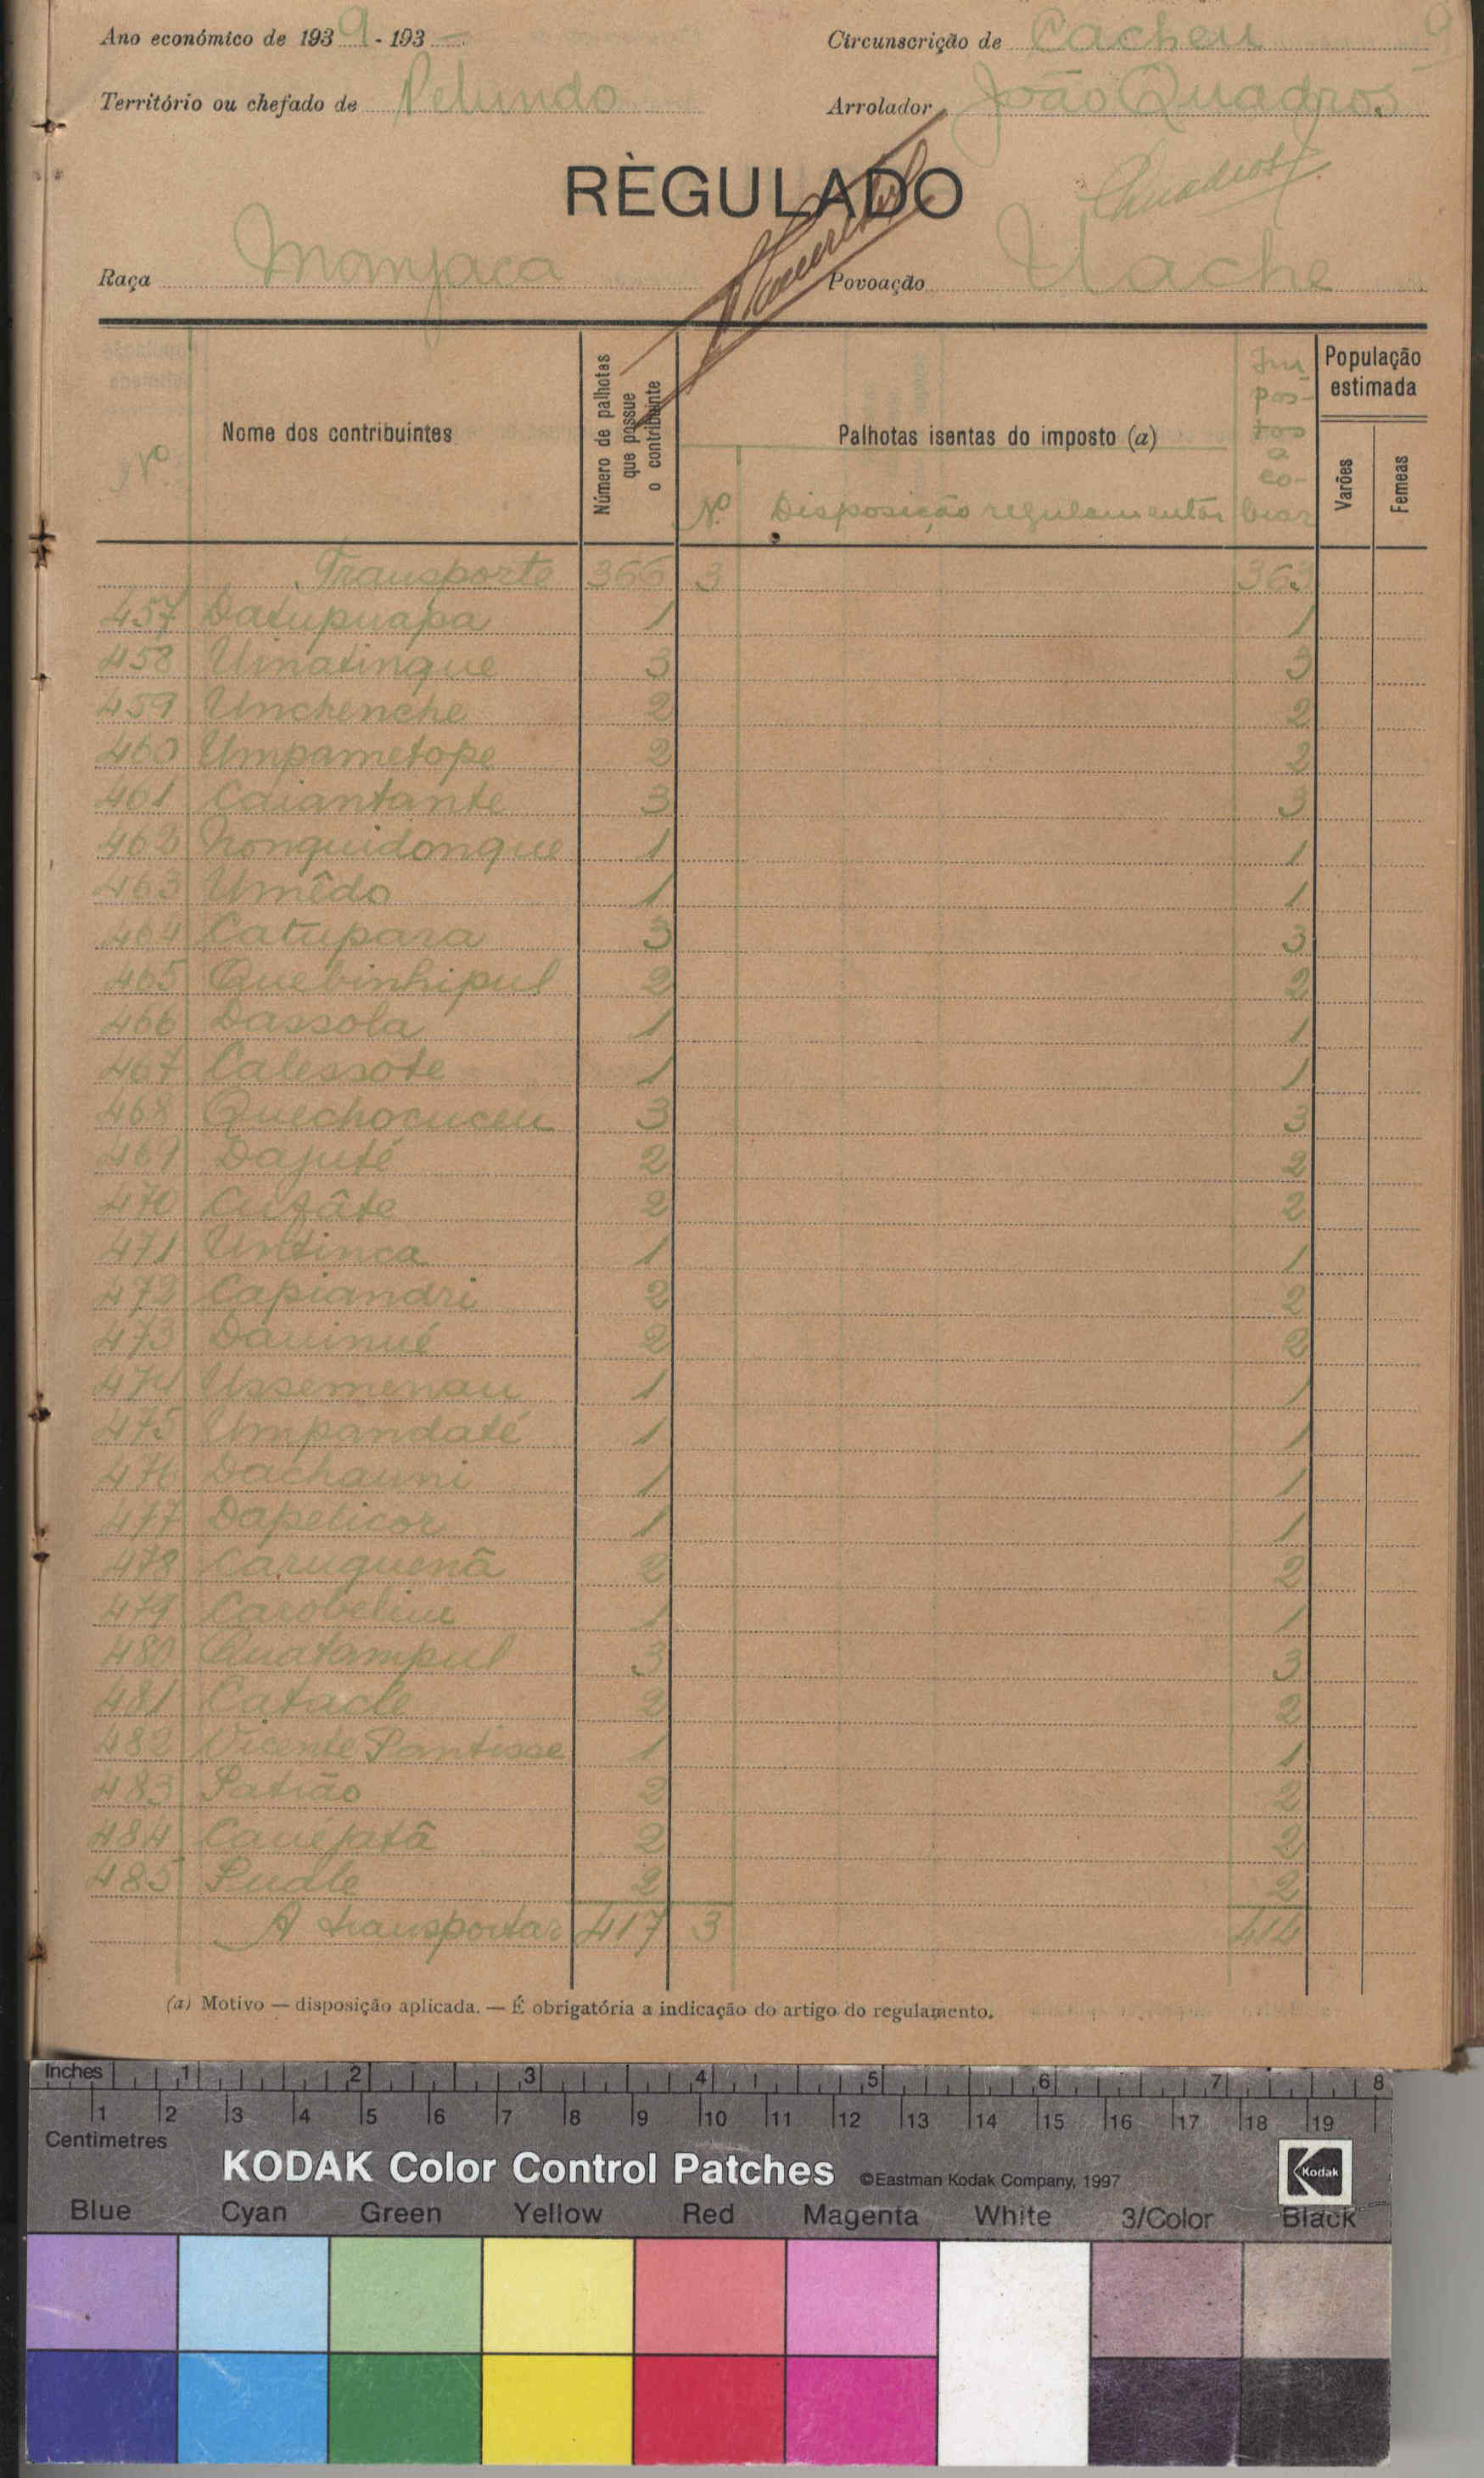 Ano económico de 1939 - 193 -
Circunscrição de Cacheu
9
Território ou chefado de Pelundo
Arrolador João Quadros
RÈGULADO
Quadros
Raça Manjaca
Povoação Uache
Nº
Nome dos contribuintes
Número de palhotas que possue o contribuinte
Palhotas isentas do imposto (a)
Nº Disposição regulamentar
Im pos- tos a co- brar
População estimada
Varões
Femeas
Transporte 366 3 363
457 Datupuapa 1 1
458 Uinatinque 3 3
459 Unchenche 2 2
460 Umpametope 2 2
461 Caiantante 3 3
462 Nonquidonque 1 1
463 Umêdo 1 1
464 Catupara 3 3
465 Quebinhipul 2 2
466 Dassola 1 1
467 Calessote 1 1
468 Quechocuceu 3 3
469 Dajuté 2 2
470 Cufâte 2 2
471 Untinca 1 1
472 Capiandri 2 2
473 Dauinué 2 2
474 Ussemenau 1 1
475 Umpandaté 1 1
476 Dachauni 1 1
477 Dapelicor 1 1
478 Caruquenã 2 2
479 Carobelim 1 1
480 Quatampul 3 3
481 Catacle 2 2
482 Vicente Pantisse 1 1
483 Patrão 2 2
484 Cauéjatã 2 2
485 Pudle 2 2
A transportar 417 3 414
(a) Motivo — disposição aplicada. — É obrigatória a indicação do artigo do regulamento.
Inches 1 2 3 4 5 6 7 8
1 2 3 4 5 6 7 8 9 10 11 12 13 14 15 16 17 18 19
Centimetres
KODAK Color Control Patches ©Eastman Kodak Company, 1997 Kodak
Blue Cyan Green Yellow Red Magenta White 3/Color Black